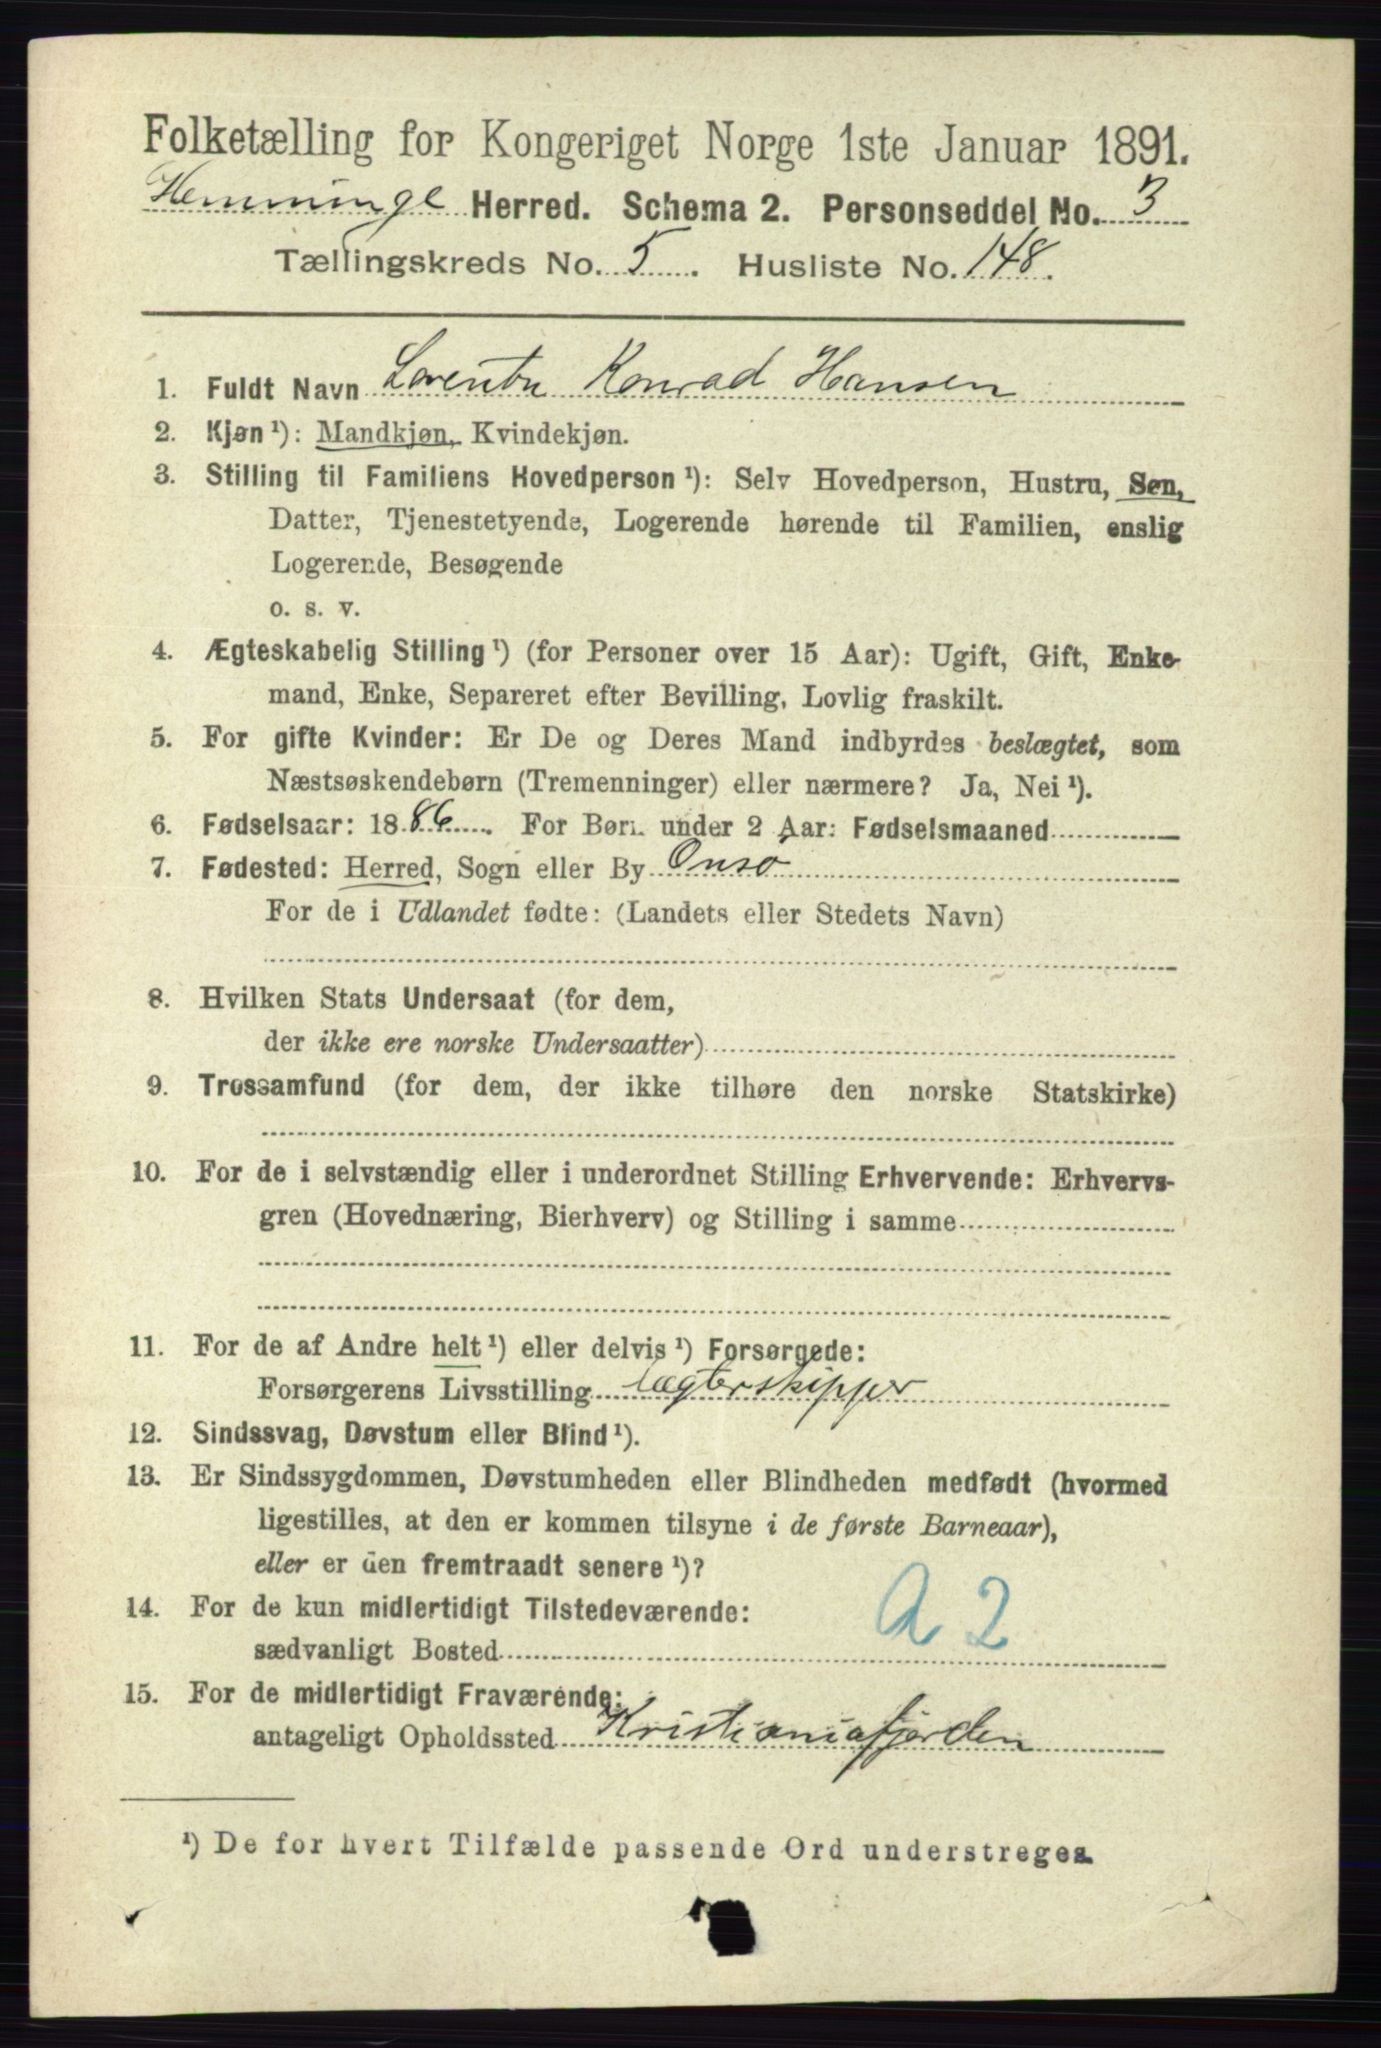 Folketælling for Kongeriget Norge 1ste Januar 1891.
Hemminge Herred. Schema 2. Personseddel No. 3
Tællingskreds No. 5. Husliste No. 148.
1. Fuldt Navn Lorentu Konrad Hansen
2. Kjøn ¹): Mandkjøn, Kvindekjøn.
3. Stilling til Familiens Hovedperson ¹): Selv Hovedperson, Hustru, Søn,
Datter, Tjenestetyende, Logerende hørende til Familien, enslig
Logerende, Besøgende
o. s. v.
4. Ægteskabelig Stilling ¹) (for Personer over 15 Aar): Ugift, Gift, Enke-
mand, Enke, Separeret efter Bevilling, Lovlig fraskilt.
5. For gifte Kvinder: Er De og Deres Mand indbyrdes beslægtet, som
Næstsøskendebørn (Tremenninger) eller nærmere? Ja, Nei ¹).
6. Fødselsaar: 1886. For Børn under 2 Aar: Fødselsmaaned
7. Fødested: Herred, Sogn eller By Onsø
For de i Udlandet fødte: (Landets eller Stedets Navn)
8. Hvilken Stats Undersaat (for dem,
der ikke ere norske Undersaatter)
9. Trossamfund (for dem, der ikke tilhøre den norske Statskirke)
10. For de i selvstændig eller i underordnet Stilling Erhvervende: Erhvervs-
gren (Hovednæring, Bierhverv) og Stilling i samme
11. For de af Andre helt ¹) eller delvis ¹) Forsørgede:
Forsørgerens Livsstilling lægterskipper
12. Sindssvag, Døvstum eller Blind ¹).
13. Er Sindssygdommen, Døvstumheden eller Blindheden medfødt (hvormed
ligestilles, at den er kommen tilsyne i de første Barneaar),
eller er den fremtraadt senere ¹)?
14. For de kun midlertidigt Tilstedeværende:
sædvanligt Bosted
a 2
15. For de midlertidigt Fraværende:
antageligt Opholdssted Kristianiafjorden
¹) De for hvert Tilfælde passende Ord understreges.